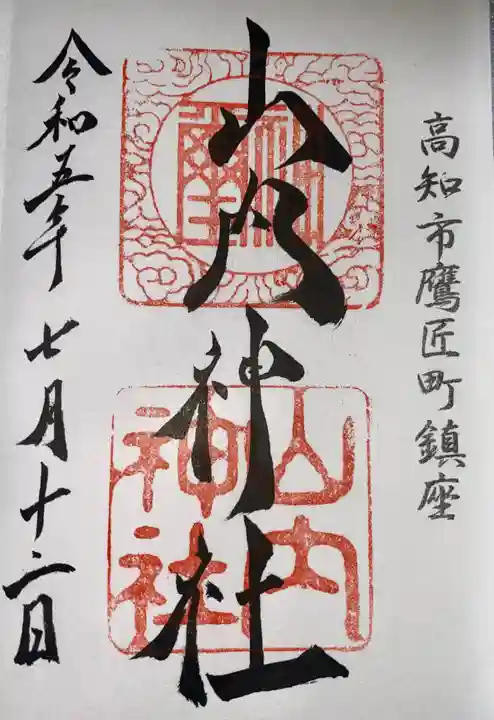 高知市鷹匠町鎮座
山内神社
山内
神社
令和五年
七月十二日